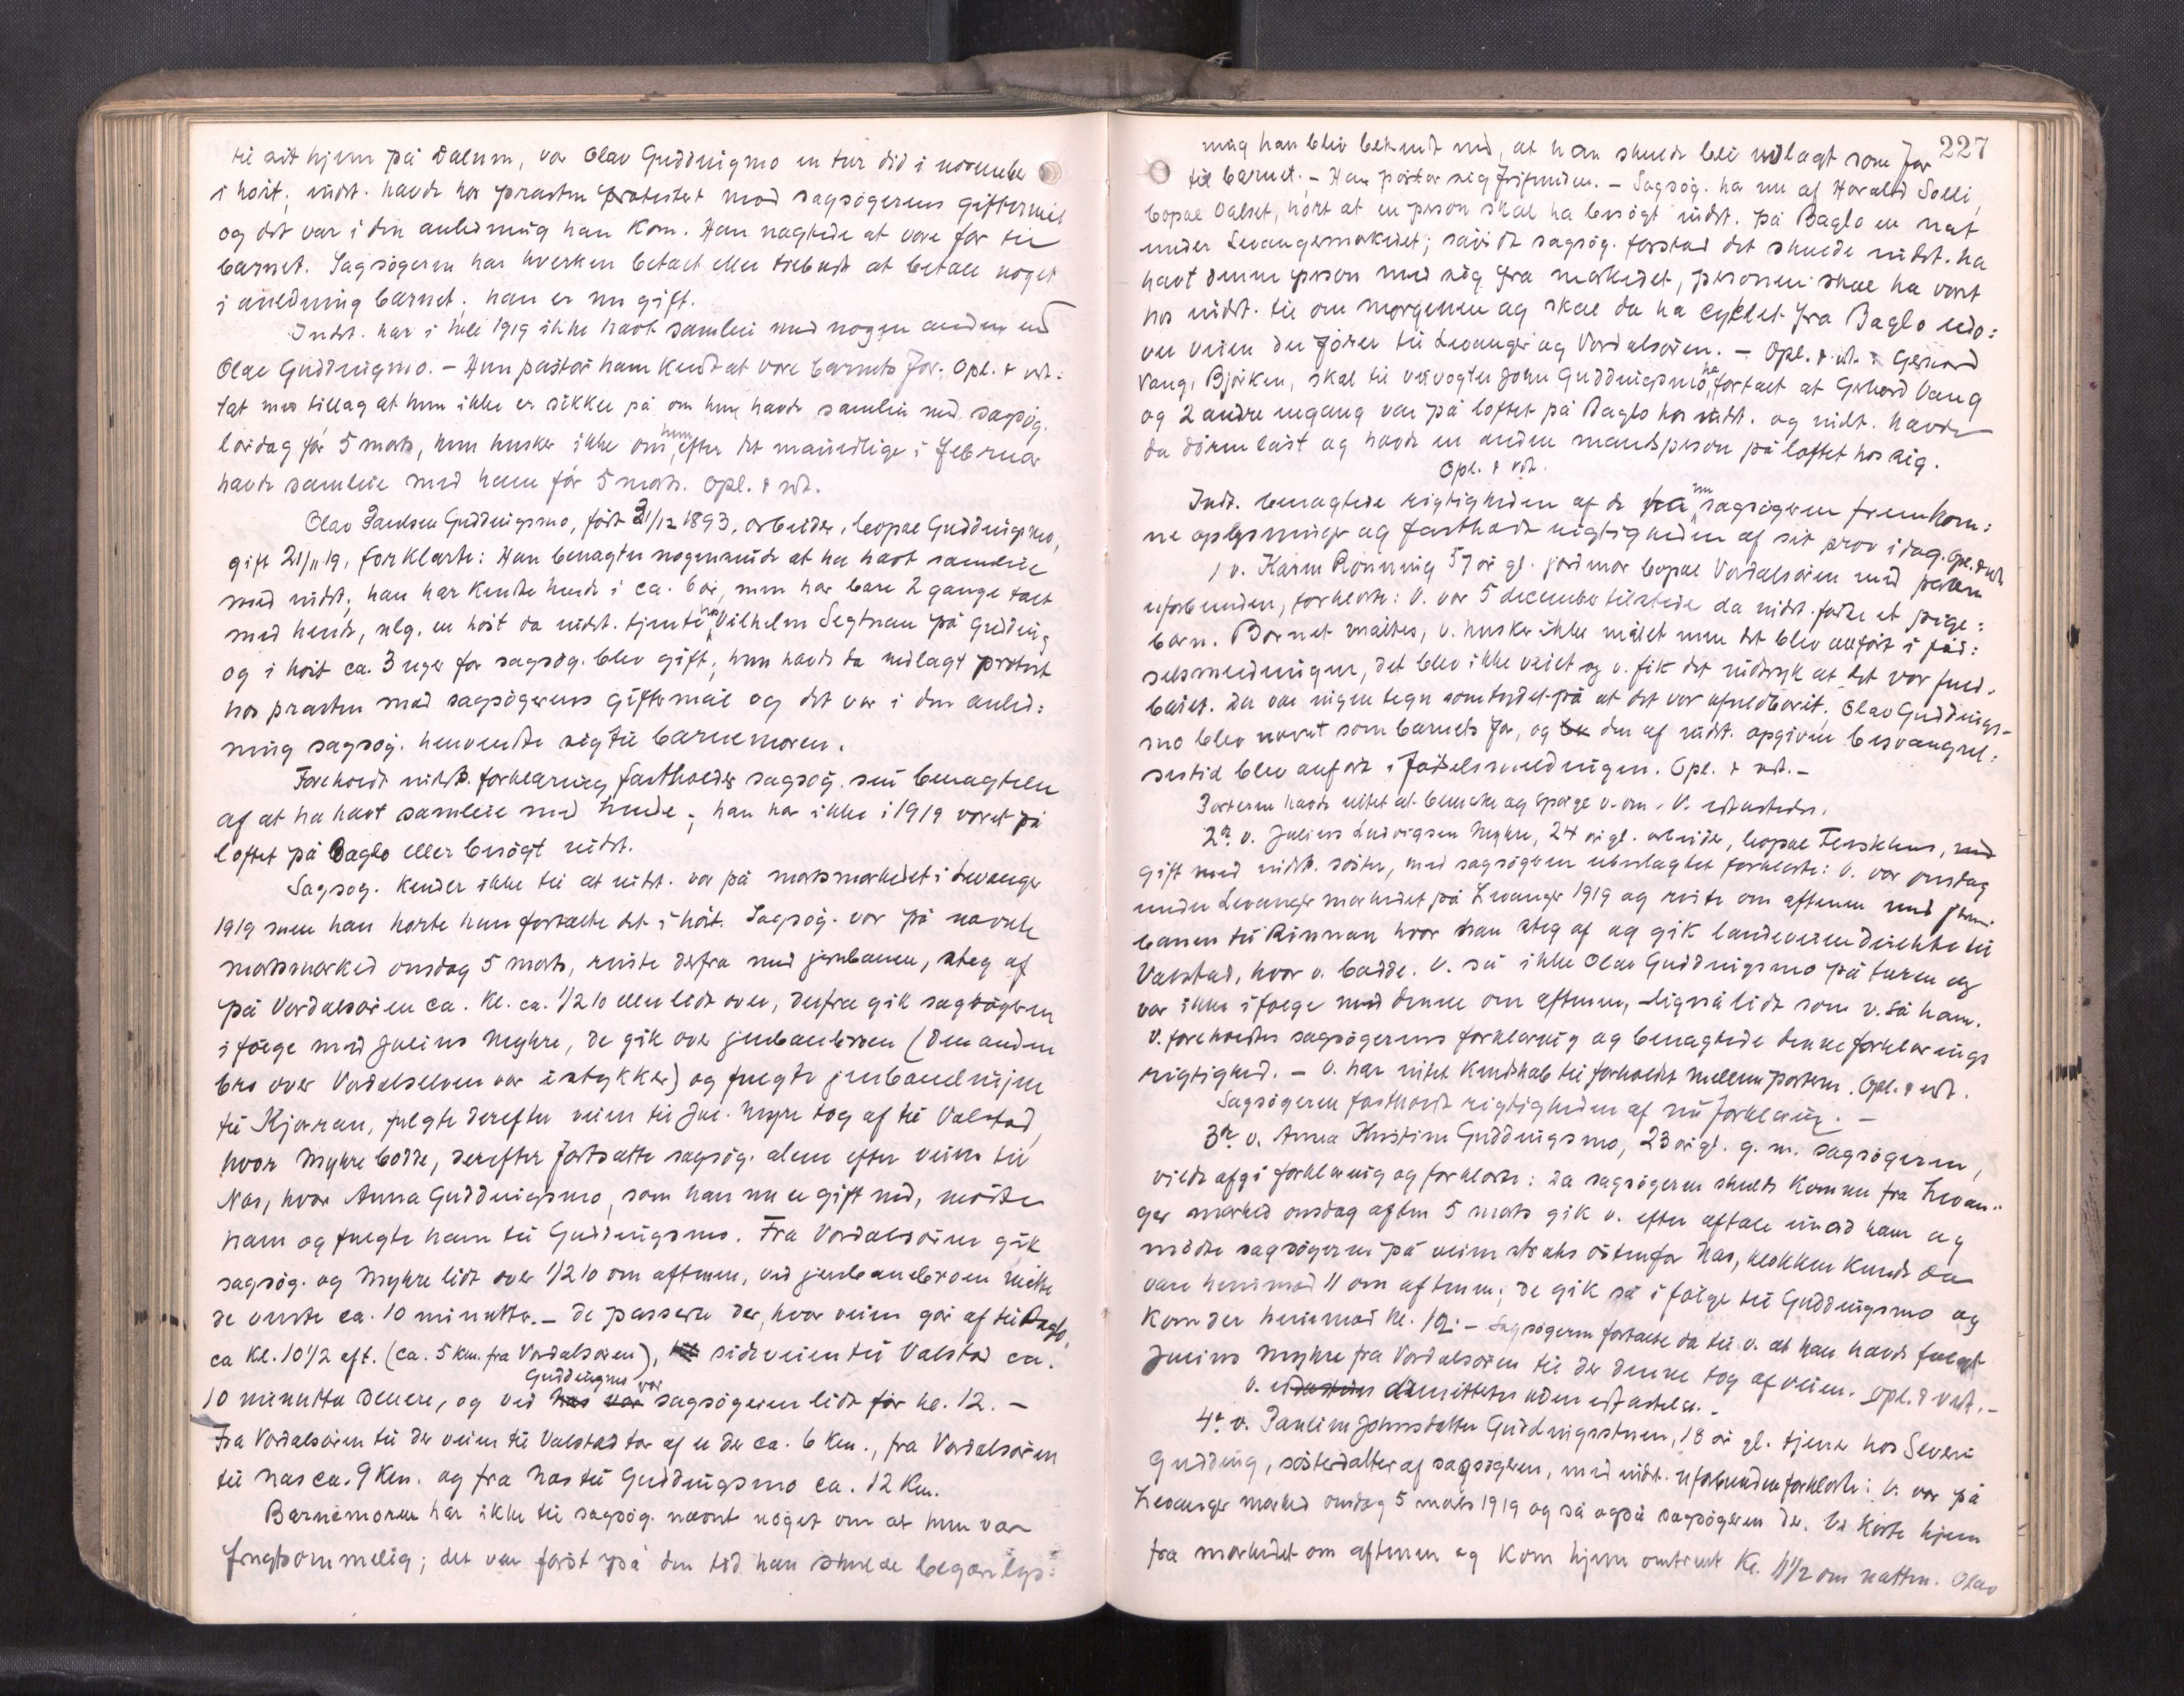 til sit hjem på Dalum, var Olav Guddingsmo en tur did i november
i høst; indst. havde hos præsten protestert mod sagsøgerens giftermål
og det var i den anledning han kom. Han nægtede at være far til
barnet. Sagsøgeren har hverken betalt eller tilbudt at betale noget
i anledning barnet; han er nu gift.
Indst. har i 1919 ikke havt samleie med nogen anden end
Olav Guddingsmo. – Hun påstår ham kendt at være barnets far. Opl. & vedt:
tat med tillæg at hun ikke er sikker på om hun havde samleie med sagsøg.
lørdag før 5 marts, hun husker ikke om hun efter det månedlige i februar
havde samleie med ham før 5 marts. Opl. & vedt.
Olav Paulsen Guddingsmo, født 31/12 1893, arbeider, bopæl Guddingsmo,
gift 21/11 19, forklarte: Han benægter nogensinde at ha havt samleie
med indst.; han har kendt hende i ca. 6 år, men har bare 2 gange talt
med hende, nlg. en høst da indst. tjente hos Vilhelm Segtnan på Gudding
og i høst ca. 3 uger før sagsøg. blev gift; hun havde da nedlagt protest
hos præsten mod sagsøgerens giftermål og det var i den anled:
ning sagsøg. henvendte sig til barnemoren.
Foreholdt indst. forklaring fastholder sagsøg. sin benægtelse
af at ha havt samleie med hende; han har ikke i 1919 været på
loftet på Baglo eller besøgt indst.
Sagsøg. kender ikke til at indst. var på martsmarkedet i Levanger
1919 men han hørte hun fortalte det i høst. Sagsøg. var på nævnte
martsmarked onsdag 5 marts, reiste derfra med jernbanen, steg af
på Verdalsøren ca. kl. ca. 1/2 10 eller lidt over, derfra gik sagsøgeren
i følge med Julius Myhre, de gik over jernbanebroen (den anden
bro over Verdalselven var i stykker) og fulgte jernbanelinjen
til Kjæran, fulgte derefter veien til Jul. Myhre tog af til Valstad,
hvor Myhre bodde, derefter fortsatte sagsøg. alene efter veien til
Næs, hvor Anna Guddingsmo, som han nu er gift med, mødte
ham og fulgte ham til Guddingsmo. Fra Verdalsøren gik
sagsøg. og Myhre lidt over 1/2 10 om aftenen, ved jernbanebroen
de ca. 10 minutter. – De passerte der, hvor veien går af til Baglo,
ca kl. 10 1/2 eft. (ca. 5 km. fra Verdalsøren), sideveien til Valstad ca.
10 minutter senere, og ved Guddingsmo var sagsøgeren lidt før kl. 12. –
Fra Verdalsøren til der veien til Valstad tar af er der ca. 6 km., fra Verdalsøren
til Næs ca. 9 km. og fra Næs til Guddingsmo ca. 12 km.
Barnemoren har ikke til sagsøg. nævnt noget om at hun var
frugtsommelig; det var først på den tid han skulde begjære lys:
227
ning han blev bekendt med, at han skulde bli utlagt som far
til barnet. – Han påstår sig frifunden. – Sagsøg. har nu af Harald Solli,
bopæl Valset, hørt at en person skal ha besøgt indst. på Baglo en nat
under Levangermarkedet; såvidt sagsøg. forstod det skulde indst. ha
havt denne person med sig fra markedet, personen skal ha vært
hos indst. til om morgenen og skal da ha cyklet fra Baglo ned:
over veien der fører til Levanger og Verdalsøren. – Opl. & vedt. Gerhard
Vang, Bjørken, skal til veivogter John Guddingsmo ha fortalt at Gerhard Vang
og 2 andre engang var på loftet på Baglo hos indst. og indst. havde
da døren låst og havde en anden mandsperson på loftet hos sig.
Opl. & vedt.
Indst. benægtede rigtigheden af de nu sagsøgeren fremkom:
ne oplysninger og fastholdt rigtigheden af sit prov idag. Opl. & vedt
1 v. Karen Rønning 57 år gl. jordmor bopæl Verdalsøren med parterne
uforbunden, forklarte: V. var 5 december tilstede da indst. fødte et pige:
barn. Barnet måltes, v. husker ikke målet men det blev anført i fød:
selsmeldingen, det blev ikke veiet og v. fik det indtryk at det var fuld-
båret. Der var ingen tegn som tydet på at det var ufuldbårit. Olav Guddings-
mo blev nævnt som barnets far, og den af indst. opgivne besvangrel:
sestid blev anført i fødselsmeldingen. Opl. & vedt. –
Parterne havde intet at bemerke og spørge v. om. V. edfæstedes.
2. v. Julius Ludvigsen Myhre, 24 år gl. arbeider, bopæl
gift med indst. søster, med sagsøgeren ubeslægtet forklarte: V. var onsdag
under Levanger markedet på Levanger 1919 og reiste om aftenen med jern
banen til Rinnan hvor han steg af og gik landeveien direkte til
Valstad, hvor v. bodde. V. så ikke Olav Guddingsmo på turen og
var ikke i følge med denne om aftenen, ligeså lidt som v. så ham.
V. foreholdtes sagsøgerens forklaring og benægtede denne forklarings
rigtighed. – V. har intet kendskab til forholdet mellem parterne. Opl. & vedt.
Sagsøgeren fastholdt rigtigheden af sin forklaring. –
3. v. Anna Kristine Guddingsmo, 23 år gl. g. m. sagsøgeren,
vilde afgi forklaring og forklarte: Da sagsøgeren skulde komme fra Levan:
ger marked onsdag aften 5 marts gik v. efter aftale imod ham og
mødte sagsøgeren på veien straks østenfor Næs, klokken kunde da
være henimod 11 om aftenen; de gik så i følge til Guddingsmo og
kom der henimod kl. 12. – Sagsøgeren fortalte da til v. at han havde fulgt
Julius Myhre fra Verdalsøren til der denne tog af veien. Opl. & vedt. –
V. dimitteres uden edfæstelse. –
4. v. Pauline Johnsdatter Guddingsstuen, 18 år gl. tjener hos Severin
Gudding, søsterdatter af sagsøgeren, med indst. uforbunden forklarte: V. var på
Levanger marked onsdag 5 marts 1919 og så også sagsøgeren der. V. kørte hjem
fra markedet om aftenen og kom hjem omtrent kl. 11 1/2 om natten. Olav